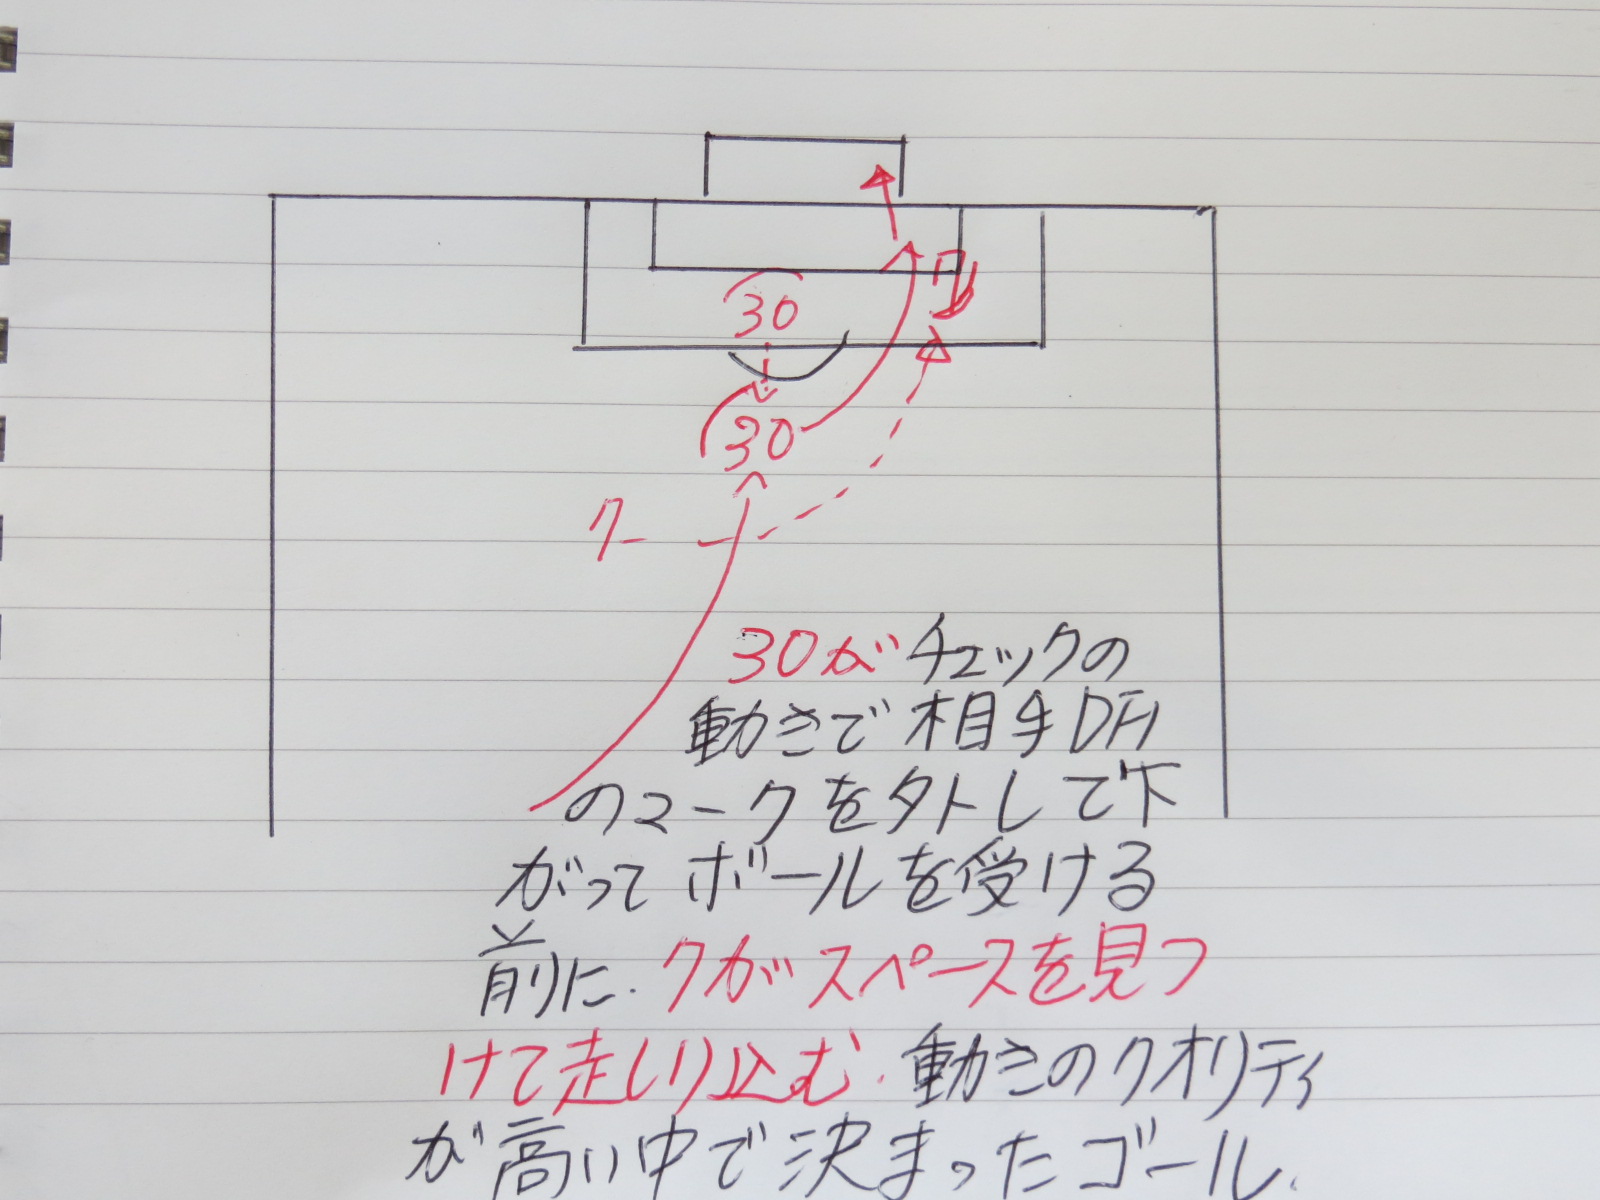 30
30
ク
ク
30がチェックの
動きで相手DFW
のマークを外して下
がってボールを受ける
前に.クがスペースを見つ
けて走しり込む.動きのクオリティ
が高い中で決まったゴール.